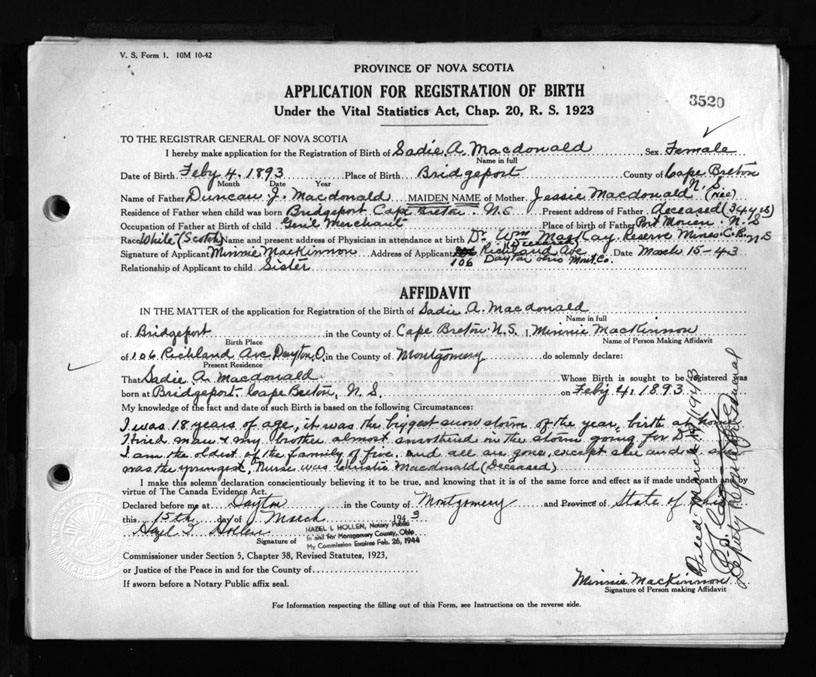 V. S. Form 1. 10M 10-42
PROVINCE OF NOVA SCOTIA
APPLICATION FOR REGISTRATION OF BIRTH
3520
Under the Vital Statistics Act, Chap. 20, R. S. 1923
TO THE REGISTRAR GENERAL OF NOVA SCOTIA
I hereby make application for the Registration of Birth of Sadie A. Macdonald Sex Female
Name in full
Date of Birth Feby 4. 1893 Place of Birth Bridgeport County of Cape Breton N.S.
Month Date Year
Name of Father Duncan J. Macdonald MAIDEN NAME of Mother Jessie Macdonald (nee)
Residence of Father when child was born Bridgeport Cape Breton. N.S Present address of Father deceased (34 yrs)
Occupation of Father at Birth of child Gen'l Merchant Place of birth of Father Port Morien. N.S.
Race White (Scotch) Name and present address of Physician in attendance at birth Dr. Wm MacKay. Reserve Mines. C.B. N.S
(deceased)
Signature of Applicant Minnie MacKinnon Address of Applicant 106 Richland Ave Date March 15-43
Dayton Ohio Mont. Co.
Relationship of Applicant to child Sister
AFFIDAVIT
IN THE MATTER of the application for Registration of the Birth of Sadie A. Macdonald
Name in full
of Bridgeport in the County of Cape Breton N.S. I, Minnie MacKinnon
Birth Place Name of Person Making Affidavit
of 106 Richland Ave Dayton, O. in the County of Montgomery do solemnly declare:
Present Residence
That Sadie A. Macdonald Whose Birth is sought to be registered was
born at Bridgeport. Cape Breton, N. S. on Feby 4. 1893
My knowledge of the fact and date of such Birth is based on the following Circumstances:
I was 18 years of age, it was the biggest snow storm of the year, birth at home
Hired man & my brother almost smothered in the storm going for Dr.
I am the oldest of the family of five, and all are gone, except she and I. she
was the youngest, Nurse was Christie Macdonald (Deceased)
I make this solemn declaration conscientiously believing it to be true, and knowing that it is of the same force and effect as if made under oath and by
virtue of The Canada Evidence Act.
Declared before me at Dayton in the County of Montgomery and Province of State of Ohio
this 15th day of March 1943
Hazel I. Hollen
HAZEL I. HOLLEN, Notary Public
In and for Montgomery County, Ohio
My Commission Expires Feb. 26, 1944
Signature of
Commissioner under Section 5, Chapter 38, Revised Statutes, 1923,
or Justice of the Peace in and for the County of
If sworn before a Notary Public affix seal.
Minnie MacKinnon
Signature of Person making Affidavit
For Information respecting the filling out of this Form, see Instructions on the reverse side.
Deputy Registrar General